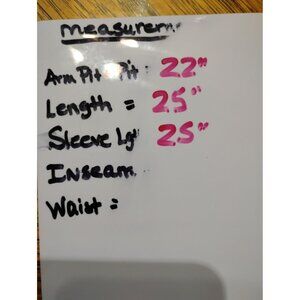 measurem
Arm Pit - Pit: 22"
Length = 25"
Sleeve Lgt 25"
Inseam
Waist =